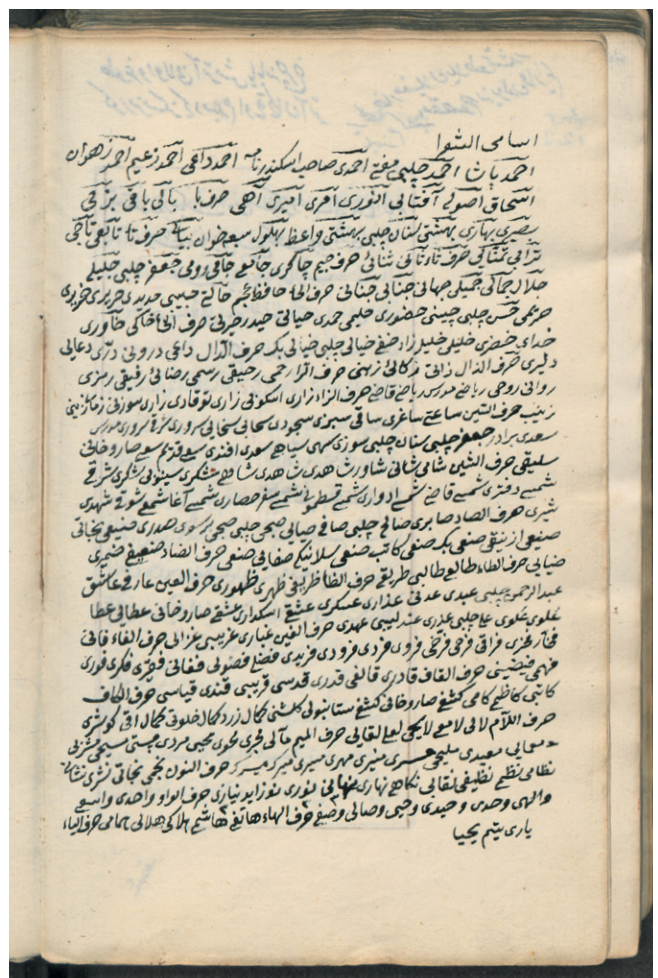 اسامی الشعرا
احمد پاشا احمد چلبی مفتی احمدی صاحب اسکندرنامه احمد داعی احمد زعیم احمد رهوان
اسحاق اصولی آفتابی انوری امری امیری آهی حرف با بالی باقی بزمی
بصیری بهاری بهشتی سنان چلبی بهشتی واعظ بهلول سبعه خوان بیانی حرف تا تابعی تاجی
ترابی تمنائی حرف ثاء ثانی ثنائی حرف جیم چاکری جامعی جاکی رومی جعفر چلبی جلیلی
جلال جمالی جمیلی جهانی جنابی جنانی حرف الحا حافظ عجم حالتی حبیبی حدیدی حریری حریری
حریمی حسن چلبی حسینی حضوری حلیمی حمدی حیاتی حیدر حیرتی حرف الخا خاکی خاوری
خدای خضری خلیلی خلیل زاد خفی خیالی چلبی خیالی بک حرف الدال داعی درونی درّی دعایی
دلیری حرف الذال ذاتی ذکائی ذهنی حرف الرا رحمی رحیقی رسمی رضائی رفیقی رمزی
روانی روحی ریاضی مدرس ریاضی قاضی حرف الزاء زاری اسکوبی زاری توقادی زاری سوزنی زمانی زینی
زینب حرف السین ساعتی ساغری ساقی سبزی سجودی سحابی سخایی سروری سروری مدرس
سعدی برادر جعفر چلبی سنان چلبی سوزی سهی سیاهی سعدی افندی سعی قدیم سعی صاروخانی
سلیقی حرف الشین شامی شانی شاور شاهدی شاهدی شافعی شکری سینوبی شکری شریفی
شمسی دفتری شمسی قاضی شمسی ادواری شمعی قسطمونی شمسی سفرحصاری شمسی آغا شمعی شوقی شهدی
شیری حرف الصاد صابری صالح چلبی صافی صبایی صبحی چلبی صبحی بوسنوی صدری صنیعی نجاتی
صنیعی ازنیقی صنعی بک صنعی کاتب صنعی سلانیک صفایی صنعی حرف الضاد ضعیفی ضمیری
ضیایی حرف الطاء طالعی طالبی طریقی حرف الظا ظریفی ظهری ظهوری حرف العین عارفی عاشق
عبدالرحمن چلبی عبدی عدنی عذاری عسکری عشقی اسکداری عشقی صاروخانی عطایی عطا
علوی علوی علی چلبی عذری عندلیبی عهدی حرف الغین غباری غریبی غزالی حرف الفاء فانی
فخار فخری فراقی فرحی فرخی فروی فردی فرودی فریدی فضلی فضولی فغانی فقیری فکری فوری
فهمی فیضینی حرف القاف قادری قالفی قدری قدسی قریبی قندی قیاسی حرف الکاف
کاتبی کاظمی کامی کشفی صاروخانی کشفی ستانبولی کلشنی کمال زرد کمال خلوتی کمال اقی کوثری
حرف اللام لالی لامعی لایحی لعلی لقایی حرف المیم مآلی مجری محوی محیی مردی مستی مسیحی مشربی
معایی معیدی ملیحی منیری مهری میسری میرک میرک حرف النون نجمی نجاتی نثری نشانی
نظامی نظمی نظیفی نقابی نکاهی نهاری نهانی نوری نوری نوزاید نیازی حرف الواو واحدی واسعی
والهی وحدی وحیدی وحیی وصالی وصفی حرف الهاء هاتفی هاشمی هلاکی هلالی همامی حرف الیاء
یاری یتیم یحیا